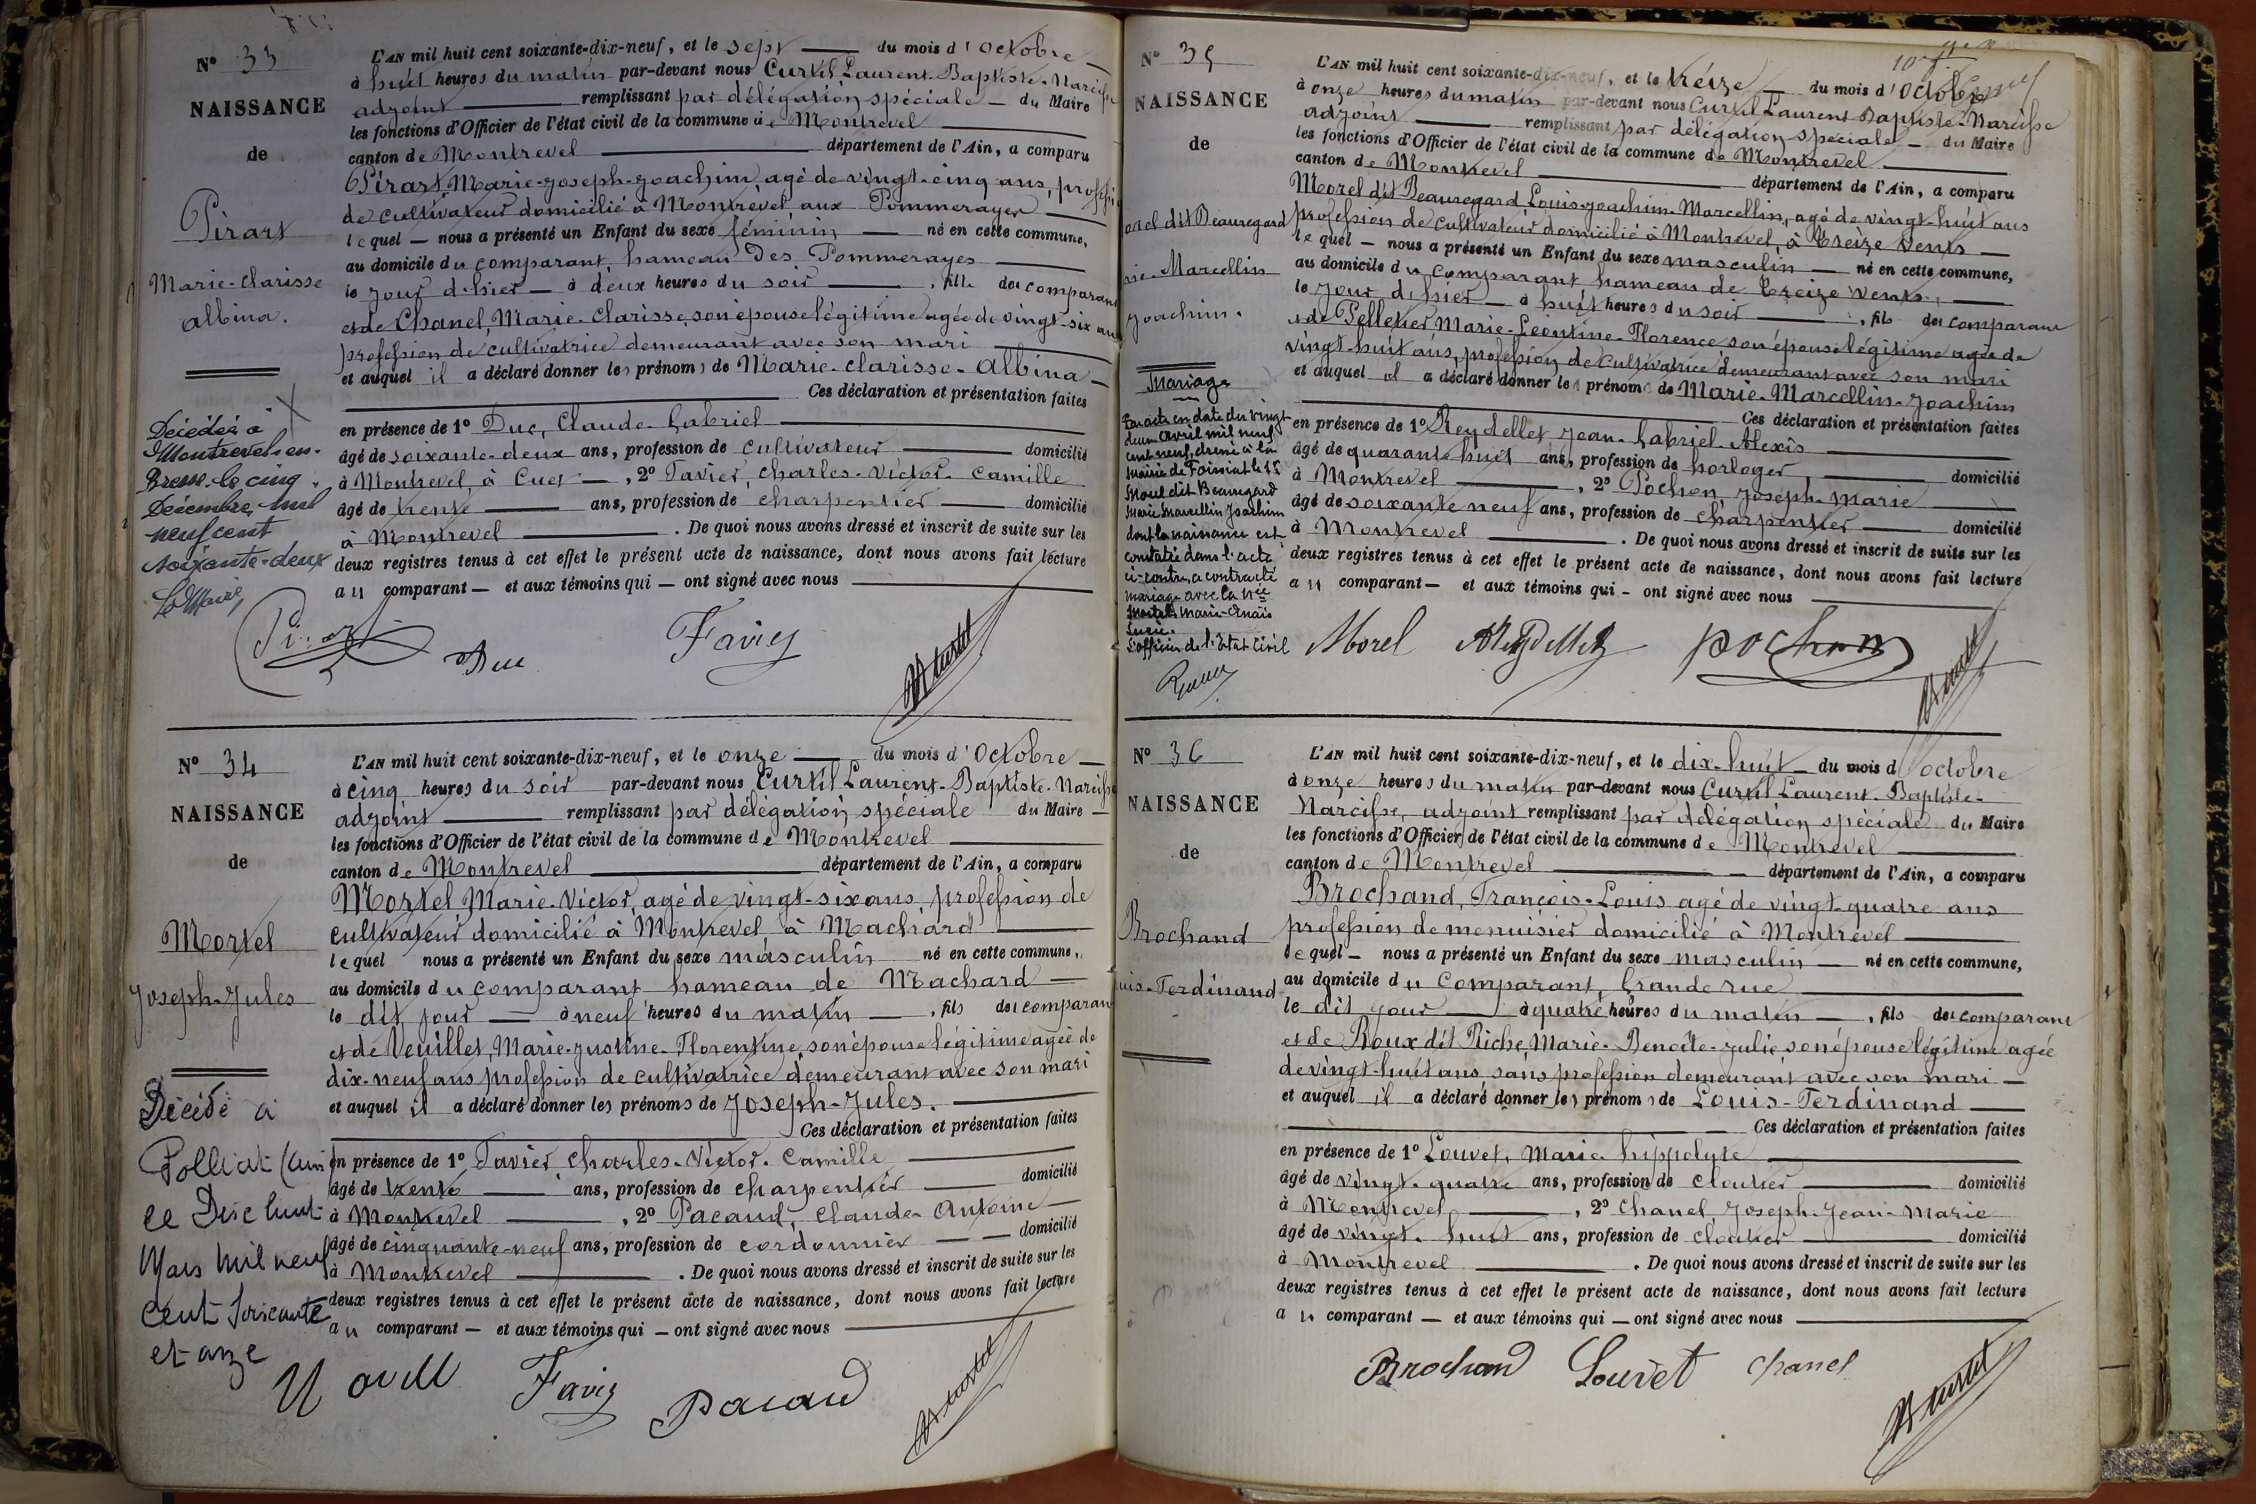 N° 33
NAISSANCE
de
Pirart
Marie-Clarisse
Albina.
Décédée à
Montrevel-en-
Bresse le cinq
Décembre mil
neuf cent
soixante-deux
Le Maire,
L'AN mil huit cent soixante-dix-neuf, et le sept du mois d'Octobre
à huit heures du matin par-devant nous Curtil Laurent-Baptiste-Narcisse
adjoint remplissant par délégation spéciale du Maire
les fonctions d'Officier de l'état civil de la commune de Montrevel
canton de Montrevel département de l'Ain, a comparu
Pirart, Marie-Joseph-Joachim, agé de vingt-cinq ans, profession
de cultivateur domicilié à Montrevel, aux Pommerayes
lequel nous a présenté un Enfant du sexe féminin né en cette commune,
au domicile du comparant, hameau des Pommerayes
le jour d'hier à deux heures du soir, fille des comparant
et de Chanel, Marie-Clarisse, son épouse légitime agée de vingt-six ans
profession de cultivatrice demeurant avec son mari
et auquel il a déclaré donner les prénoms de Marie-Clarisse-Albina
Ces déclaration et présentation faites
en présence de 1° Duc, Claude-Gabriel
âgé de soixante-deux ans, profession de cultivateur domicilié
à Montrevel, à Cuet, 2° Favier, Charles-Victor-Camille
âgé de trente ans, profession de charpentier domicilié
à Montrevel. De quoi nous avons dressé et inscrit de suite sur les
deux registres tenus à cet effet le présent acte de naissance, dont nous avons fait lecture
au comparant et aux témoins qui ont signé avec nous
Duc Favier
N° 34
NAISSANCE
de
Mortel
Joseph-Jules
Décédé à
Polliat (Ain
le Dix huit
Mars mil neuf
cent soixante
et onze
L'AN mil huit cent soixante-dix-neuf, et le onze du mois d'Octobre
à cinq heures du soir par-devant nous Curtil Laurent-Baptiste-Narcisse
adjoint remplissant par délégation spéciale du Maire
les fonctions d'Officier de l'état civil de la commune de Montrevel
canton de Montrevel département de l'Ain, a comparu
Mortel Marie-Victor, agé de vingt-six ans, profession de
cultivateur domicilié à Montrevel à Machard
lequel nous a présenté un Enfant du sexe masculin né en cette commune,
au domicile du comparant hameau de Machard
le dit jour à neuf heures du matin, fils des comparant
et de Veuillet, Marie-Justine-Florentine, son épouse légitime agée de
dix-neuf ans profession de cultivatrice demeurant avec son mari
et auquel il a déclaré donner les prénoms de Joseph-Jules.
Ces déclaration et présentation faites
en présence de 1° Favier Charles-Victor-Camille
âgé de trente ans, profession de charpentier domicilié
à Montrevel, 2° Pacaud, Claude-Antoine
âgé de cinquante-neuf ans, profession de cordonnier domicilié
à Montrevel. De quoi nous avons dressé et inscrit de suite sur les
deux registres tenus à cet effet le présent acte de naissance, dont nous avons fait lecture
au comparant et aux témoins qui ont signé avec nous
Favier Pacaud
N° 35
NAISSANCE
de
orel dit Beauregard
rie-Marcellin
Joachim.
Mariage
Par acte en date du vingt
deux avril mil neuf
cent neuf, dressé à la
mairie de Foissiat le St
Morel dit Beauregard
Marie Marcellin Joachim
dont la naissance est
constatée dans l'acte
ci-contre, a contracté
mariage avec la née
Marie-Anaïs
L'officier de l'Etat Civil
L'AN mil huit cent soixante-dix-neuf, et le treize du mois d'Octobre
à onze heures du matin par-devant nous Curtil Laurent Baptiste-Narcisse
adjoint remplissant par délégation spéciale du Maire
les fonctions d'Officier de l'état civil de la commune de Montrevel
canton de Montrevel département de l'Ain, a comparu
Morel dit Beauregard Louis-Joachim-Marcellin, agé de vingt-huit ans
profession de cultivateur domicilié à Montrevel, à Treize Vents
lequel nous a présenté un Enfant du sexe masculin né en cette commune,
au domicile du comparant hameau de Treize Vents,
le jour d'hier à huit heures du soir, fils des comparant
et de Pelletier Marie-Léontine-Florence son épouse légitime agée de
vingt-huit ans, profession de cultivatrice demeurant avec son mari
et auquel il a déclaré donner les prénoms de Marie-Marcellin-Joachim
Ces déclaration et présentation faites
en présence de 1° Reydellet Jean-Gabriel-Alexis
âgé de quarante huit ans, profession de horloger domicilié
à Montrevel, 2° Pochon, Joseph-Marie
âgé de soixante neuf ans, profession de charpentier domicilié
à Montrevel. De quoi nous avons dressé et inscrit de suite sur les
deux registres tenus à cet effet le présent acte de naissance, dont nous avons fait lecture
au comparant et aux témoins qui ont signé avec nous
Morel Reydellet pochon
N° 36
NAISSANCE
de
Brochand
uis-Ferdinand
L'AN mil huit cent soixante-dix-neuf, et le dix-huit du mois d'octobre
à onze heures du matin par-devant nous Curtil Laurent-Baptiste-
Narcisse, adjoint remplissant par délégation spéciale du Maire
les fonctions d'Officier de l'état civil de la commune de Montrevel
canton de Montrevel département de l'Ain, a comparu
Brochand, François-Louis agé de vingt-quatre ans
profession de menuisier domicilié à Montrevel
lequel nous a présenté un Enfant du sexe masculin né en cette commune,
au domicile du Comparant, Grande rue
le dit jour à quatre heures du matin, fils des comparant
et de Roux dit Riche, Marie-Benoîte-Julie son épouse légitime agée
de vingt-huit ans sans profession demeurant avec son mari
et auquel il a déclaré donner les prénoms de Louis-Ferdinand
Ces déclaration et présentation faites
en présence de 1° Louvet, Marie-hippolyte
âgé de vingt-quatre ans, profession de cloutier domicilié
à Montrevel, 2° Chanel Joseph-Jean-Marie
âgé de vingt-huit ans, profession de cloutier domicilié
à Montrevel. De quoi nous avons dressé et inscrit de suite sur les
deux registres tenus à cet effet le présent acte de naissance, dont nous avons fait lecture
au comparant et aux témoins qui ont signé avec nous
Brochand Louvet Chanel